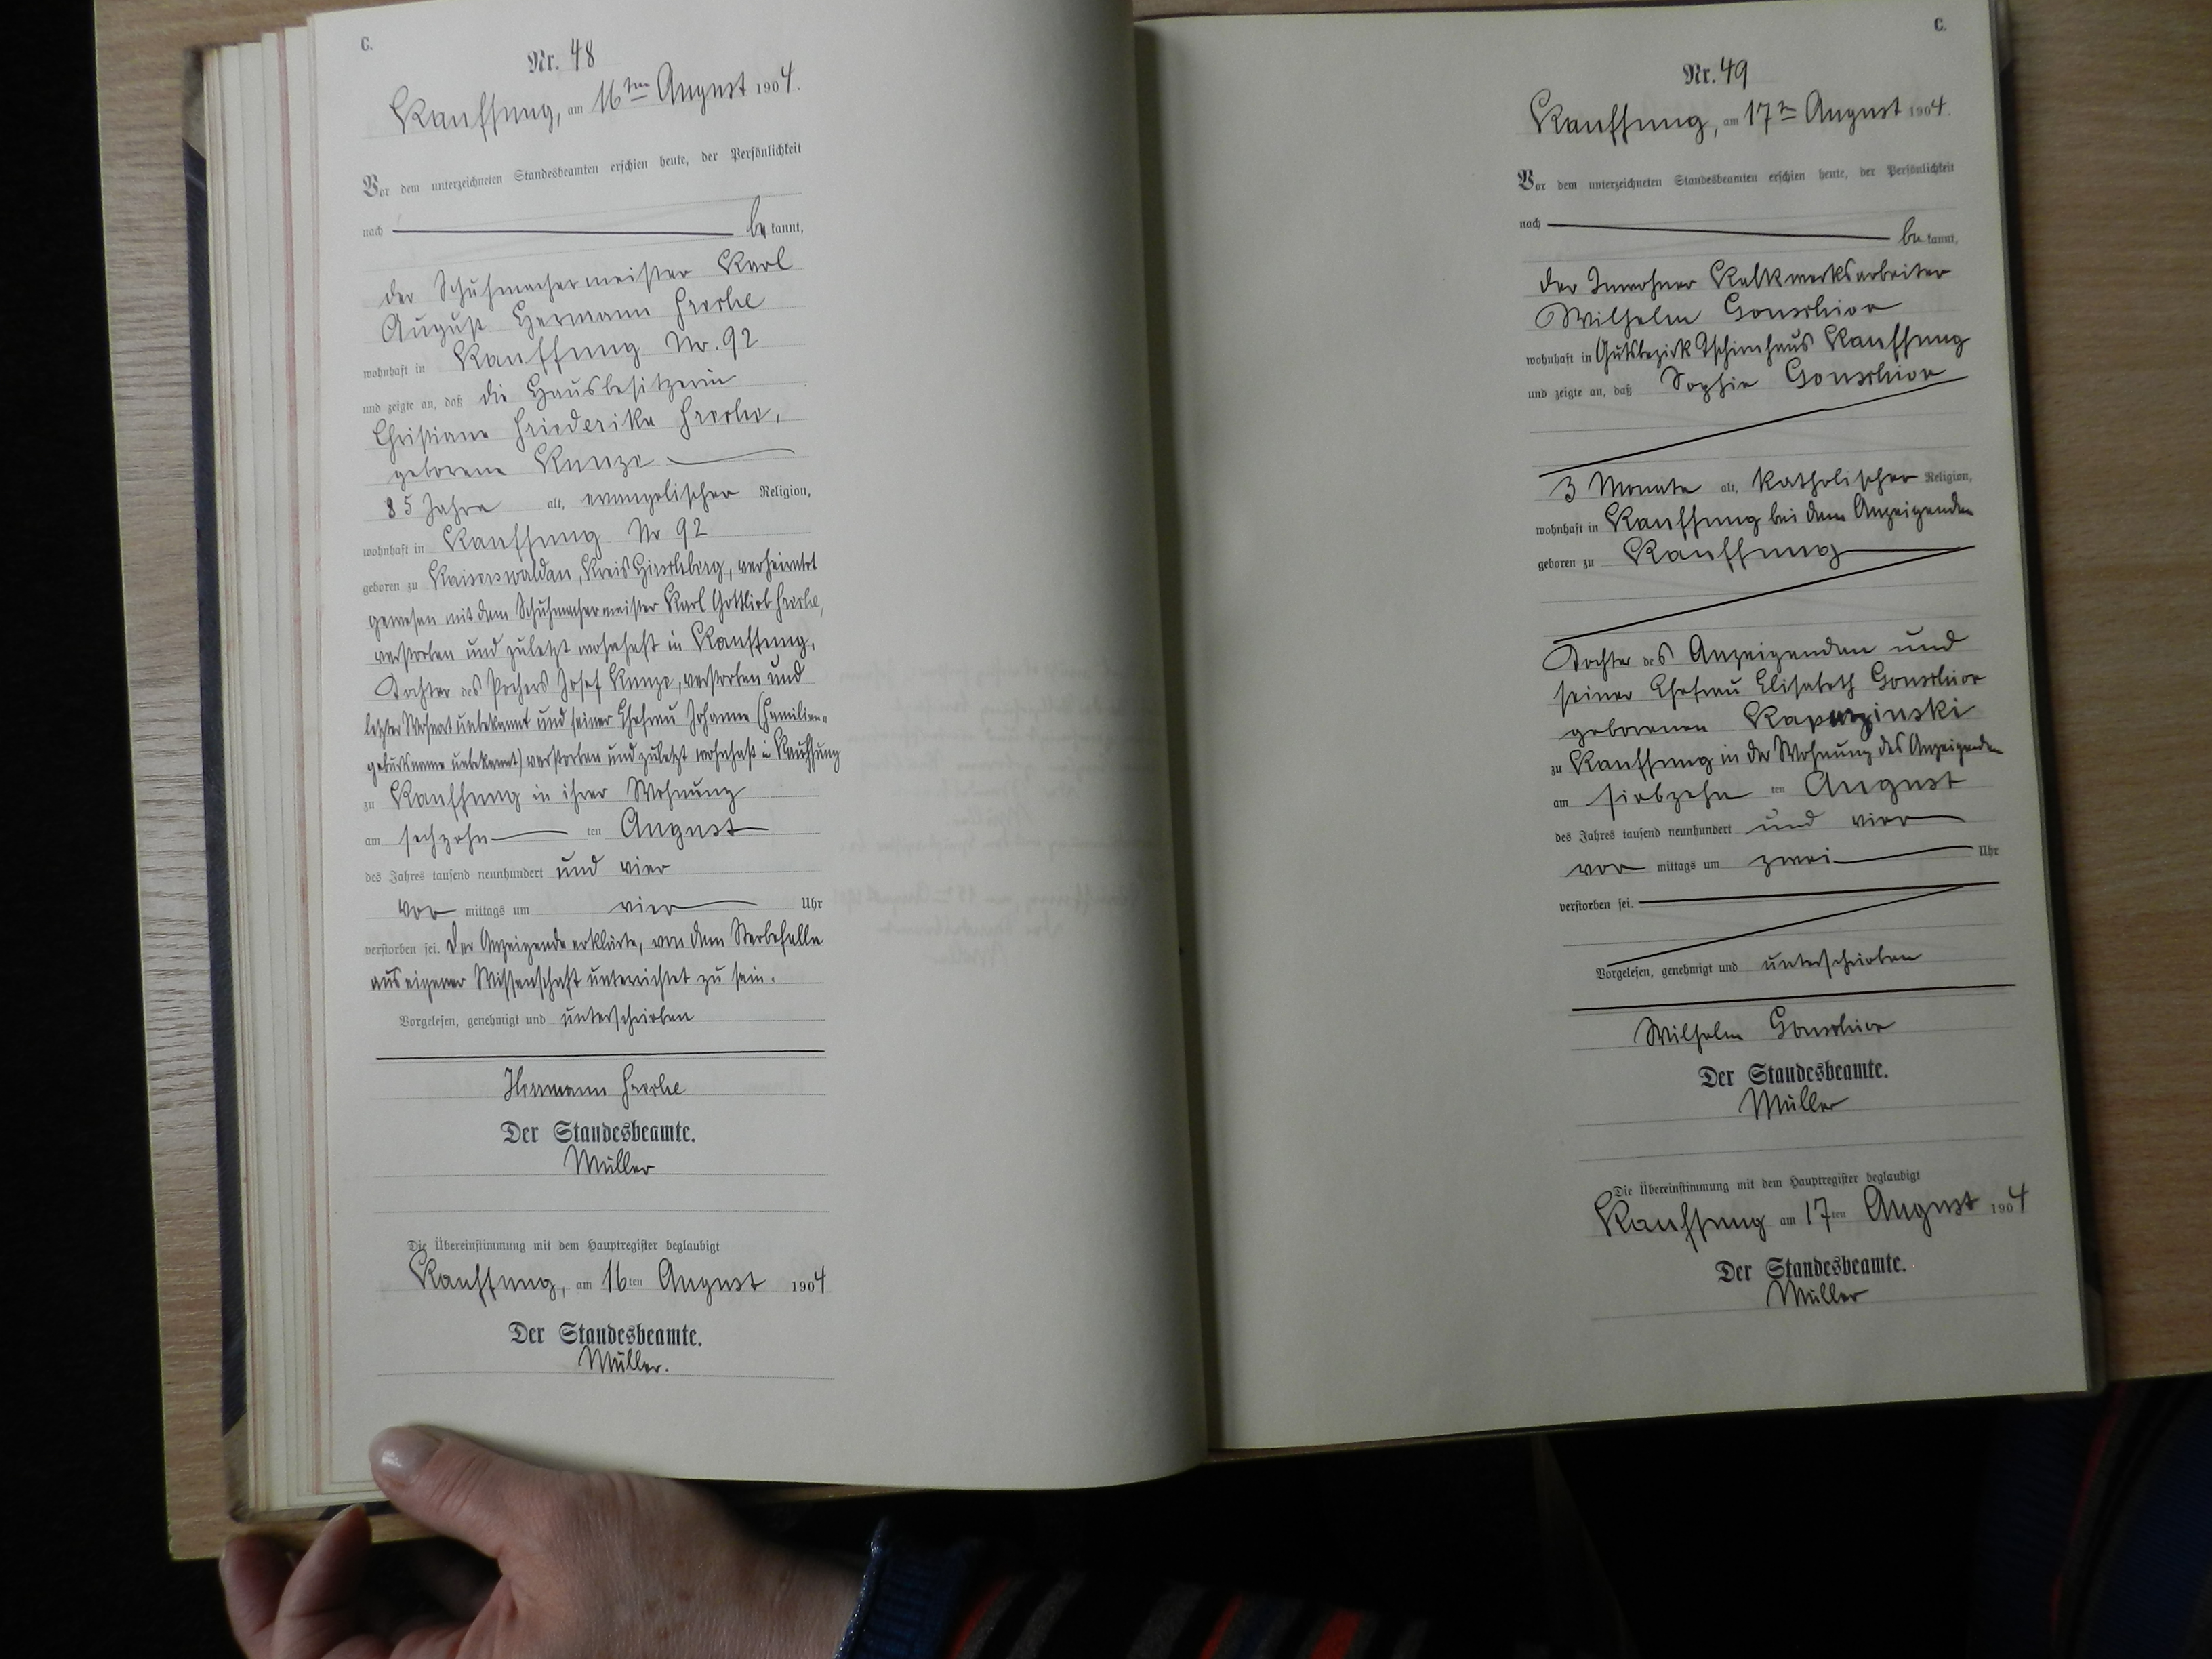 C.
Nr. 48
Kauffung, am 16ten August 1904.
Vor dem unterzeichneten Standesbeamten erschien heute, der Persönlichkeit
nach bekannt,
der Schuhmachermeister Karl
August Hermann
wohnhaft in Kauffung Nr. 92
und zeigte an, daß die Hausbesitzerin
Christiane Friederike
geborene Kunze
85 Jahre alt, evangelischer Religion,
wohnhaft in Kauffung Nr 92
geboren zu Kaiserswaldau, Kreis Hirschberg, verheirathet
gewesen mit dem Schuhmachermeister Karl Gottlieb
verstorben und zuletzt wohnhaft in Kauffung,
Tochter des Pochers Josef Kunze, verstorben und
letzter Wohnort unbekannt und seiner Ehefrau Johanne (Familien-
geburtsname unbekannt) verstorben und zuletzt wohnhaft in Kauffung
zu Kauffung in ihrer Wohnung
am sechzehnten August
des Jahres tausend neunhundert und vier
Vormittags um vier Uhr
verstorben sei. Der Anzeigende erklärte, von dem Sterbefalle
aus eigener Wissenschaft unterrichtet zu sein.
Vorgelesen, genehmigt und unterschrieben
Hermann
Der Standesbeamte.
Müller
Die Übereinstimmung mit dem Hauptregister beglaubigt
Kauffung, am 16ten August 1904
Der Standesbeamte.
Müller.
C.
Nr. 49
Kauffung, am 17n August 1904.
Vor dem unterzeichneten Standesbeamten erschien heute, der Persönlichkeit
nach bekannt,
der Inwohner Kalkwerksarbeiter
Wilhelm Gonschior
wohnhaft in Gutsbezirk Tschirnhaus Kauffung
und zeigte an, daß Sophie Gonschior
3 Monate alt, katholischer Religion,
wohnhaft in Kauffung bei dem Anzeigenden
geboren zu Kauffung
Tochter des Anzeigenden und
seiner Ehefrau Elisabeth Gonschior
geborenen
zu Kauffung in der Wohnung des Anzeigenden
am siebzehnten August
des Jahres tausend neunhundert und vier
vormittags um zwei Uhr
verstorben sei.
Vorgelesen, genehmigt und unterschrieben
Wilhelm Gonschior
Der Standesbeamte.
Müller
Die Übereinstimmung mit dem Hauptregister beglaubigt
Kauffung am 17ten August 1904
Der Standesbeamte.
Müller